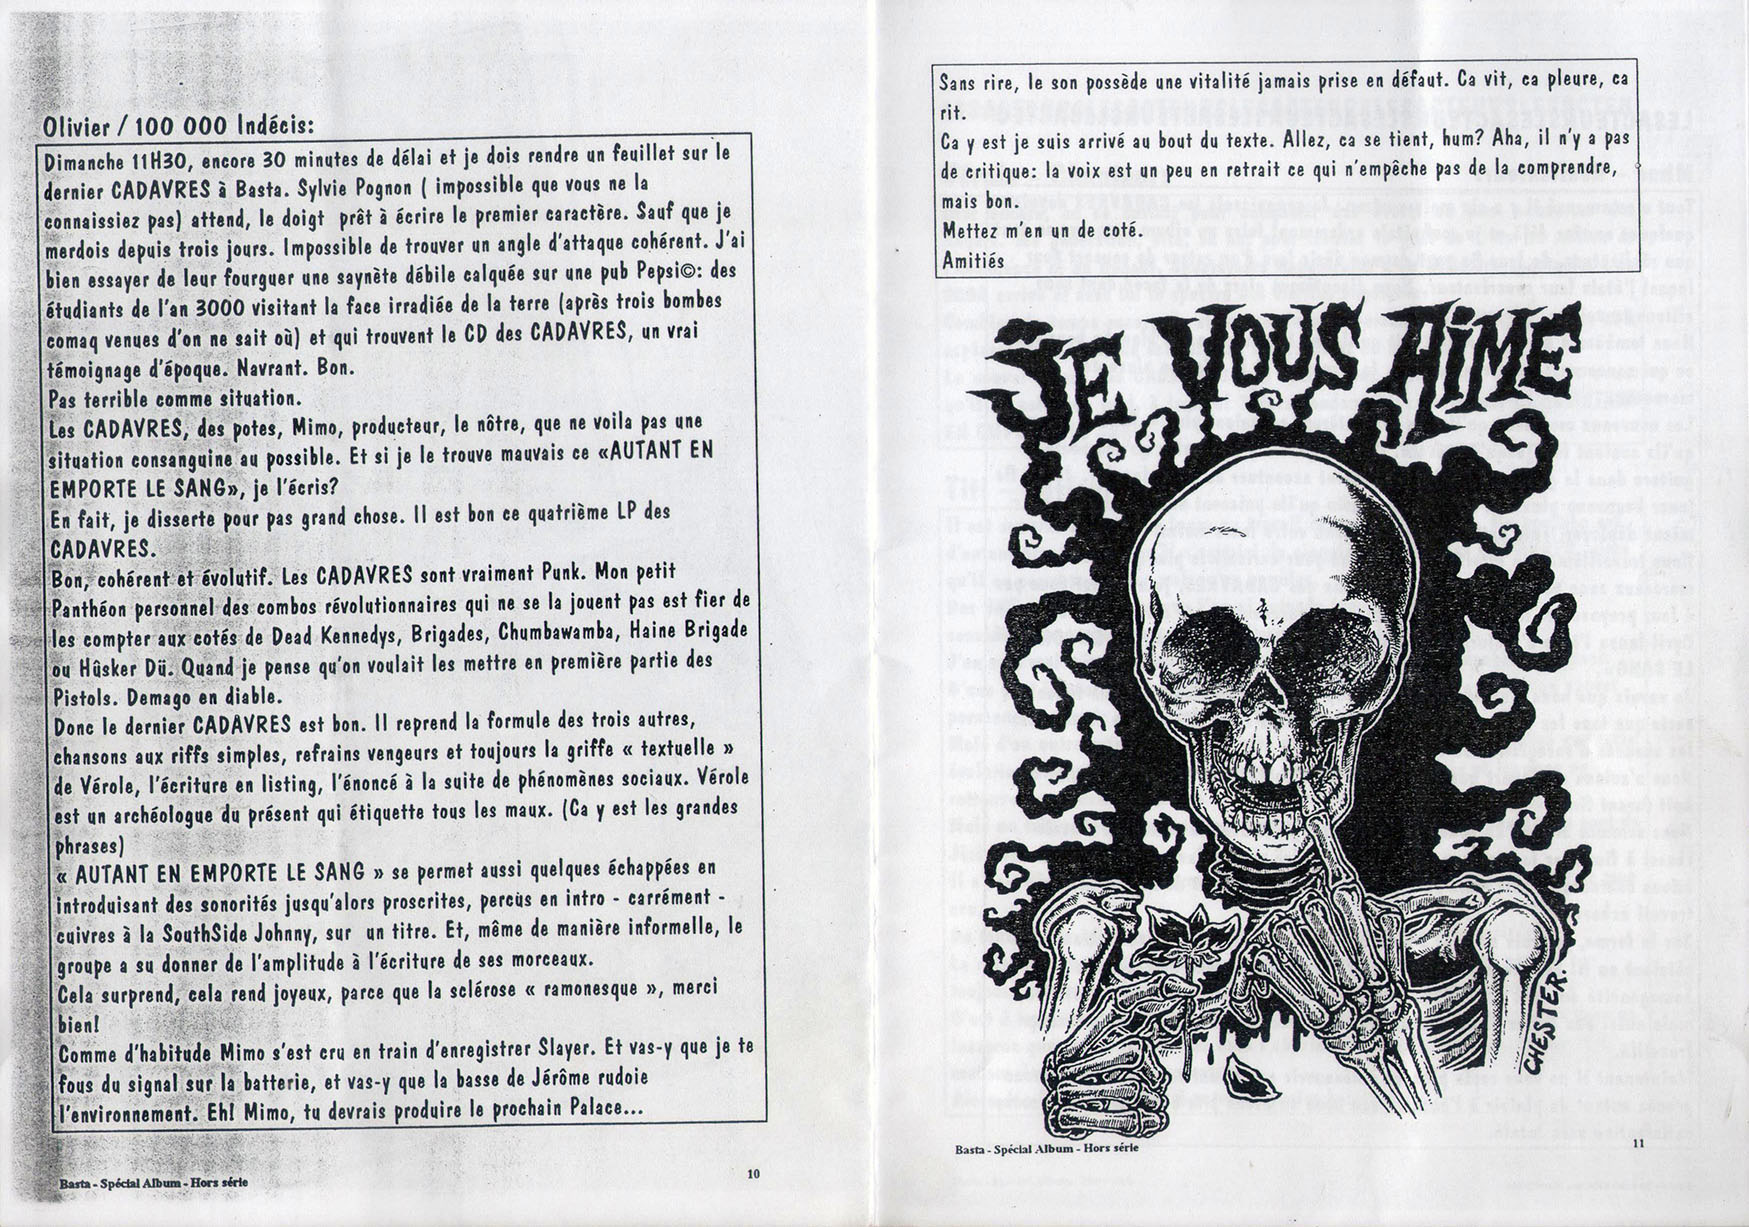 Olivier / 100 000 Indécis:
Dimanche 11H30, encore 30 minutes de délai et je dois rendre un feuillet sur le
dernier CADAVRES à Basta. Sylvie Pognon ( impossible que vous ne la
connaissiez pas) attend, le doigt prêt à écrire le premier caractère. Sauf que je
merdois depuis trois jours. Impossible de trouver un angle d'attaque cohérent. J'ai
bien essayer de leur fourguer une saynète débile calquée sur une pub Pepsi©: des
étudiants de l'an 3000 visitant la face irradiée de la terre (après trois bombes
comaq venues d'on ne sait où) et qui trouvent le CD des CADAVRES, un vrai
témoignage d'époque. Navrant. Bon.
Pas terrible comme situation.
Les CADAVRES, des potes, Mimo, producteur, le nôtre, que ne voila pas une
situation consanguine au possible. Et si je le trouve mauvais ce «AUTANT EN
EMPORTE LE SANG», je l'écris?
En fait, je disserte pour pas grand chose. Il est bon ce quatrième LP des
CADAVRES.
Bon, cohérent et évolutif. Les CADAVRES sont vraiment Punk. Mon petit
Panthéon personnel des combos révolutionnaires qui ne se la jouent pas est fier de
les compter aux cotés de Dead Kennedys, Brigades, Chumbawamba, Haine Brigade
ou Hûsker Dü. Quand je pense qu'on voulait les mettre en première partie des
Pistols. Demago en diable.
Donc le dernier CADAVRES est bon. Il reprend la formule des trois autres,
chansons aux riffs simples, refrains vengeurs et toujours la griffe « textuelle »
de Vérole, l'écriture en listing, l'énoncé à la suite de phénomènes sociaux. Vérole
est un archéologue du présent qui étiquette tous les maux. (Ca y est les grandes
phrases)
« AUTANT EN EMPORTE LE SANG » se permet aussi quelques échappées en
introduisant des sonorités jusqu'alors proscrites, percus en intro - carrément -
cuivres à la SouthSide Johnny, sur un titre. Et, même de manière informelle, le
groupe a su donner de l'amplitude à l'écriture de ses morceaux.
Cela surprend, cela rend joyeux, parce que la sclérose « ramonesque », merci
bien!
Comme d'habitude Mimo s'est cru en train d'enregistrer Slayer. Et vas-y que je te
fous du signal sur la batterie, et vas-y que la basse de Jérôme rudoie
l'environnement. Eh! Mimo, tu devrais produire le prochain Palace...
Basta - Spécial Album - Hors série
10
Sans rire, le son possède une vitalité jamais prise en défaut. Ca vit, ca pleure, ca
rit.
Ca y est je suis arrivé au bout du texte. Allez, ca se tient, hum? Aha, il n'y a pas
de critique: la voix est un peu en retrait ce qui n'empêche pas de la comprendre,
mais bon.
Mettez m'en un de coté.
Amitiés
JE VOUS AIME
CHESTER.
Basta - Spécial Album - Hors série
11